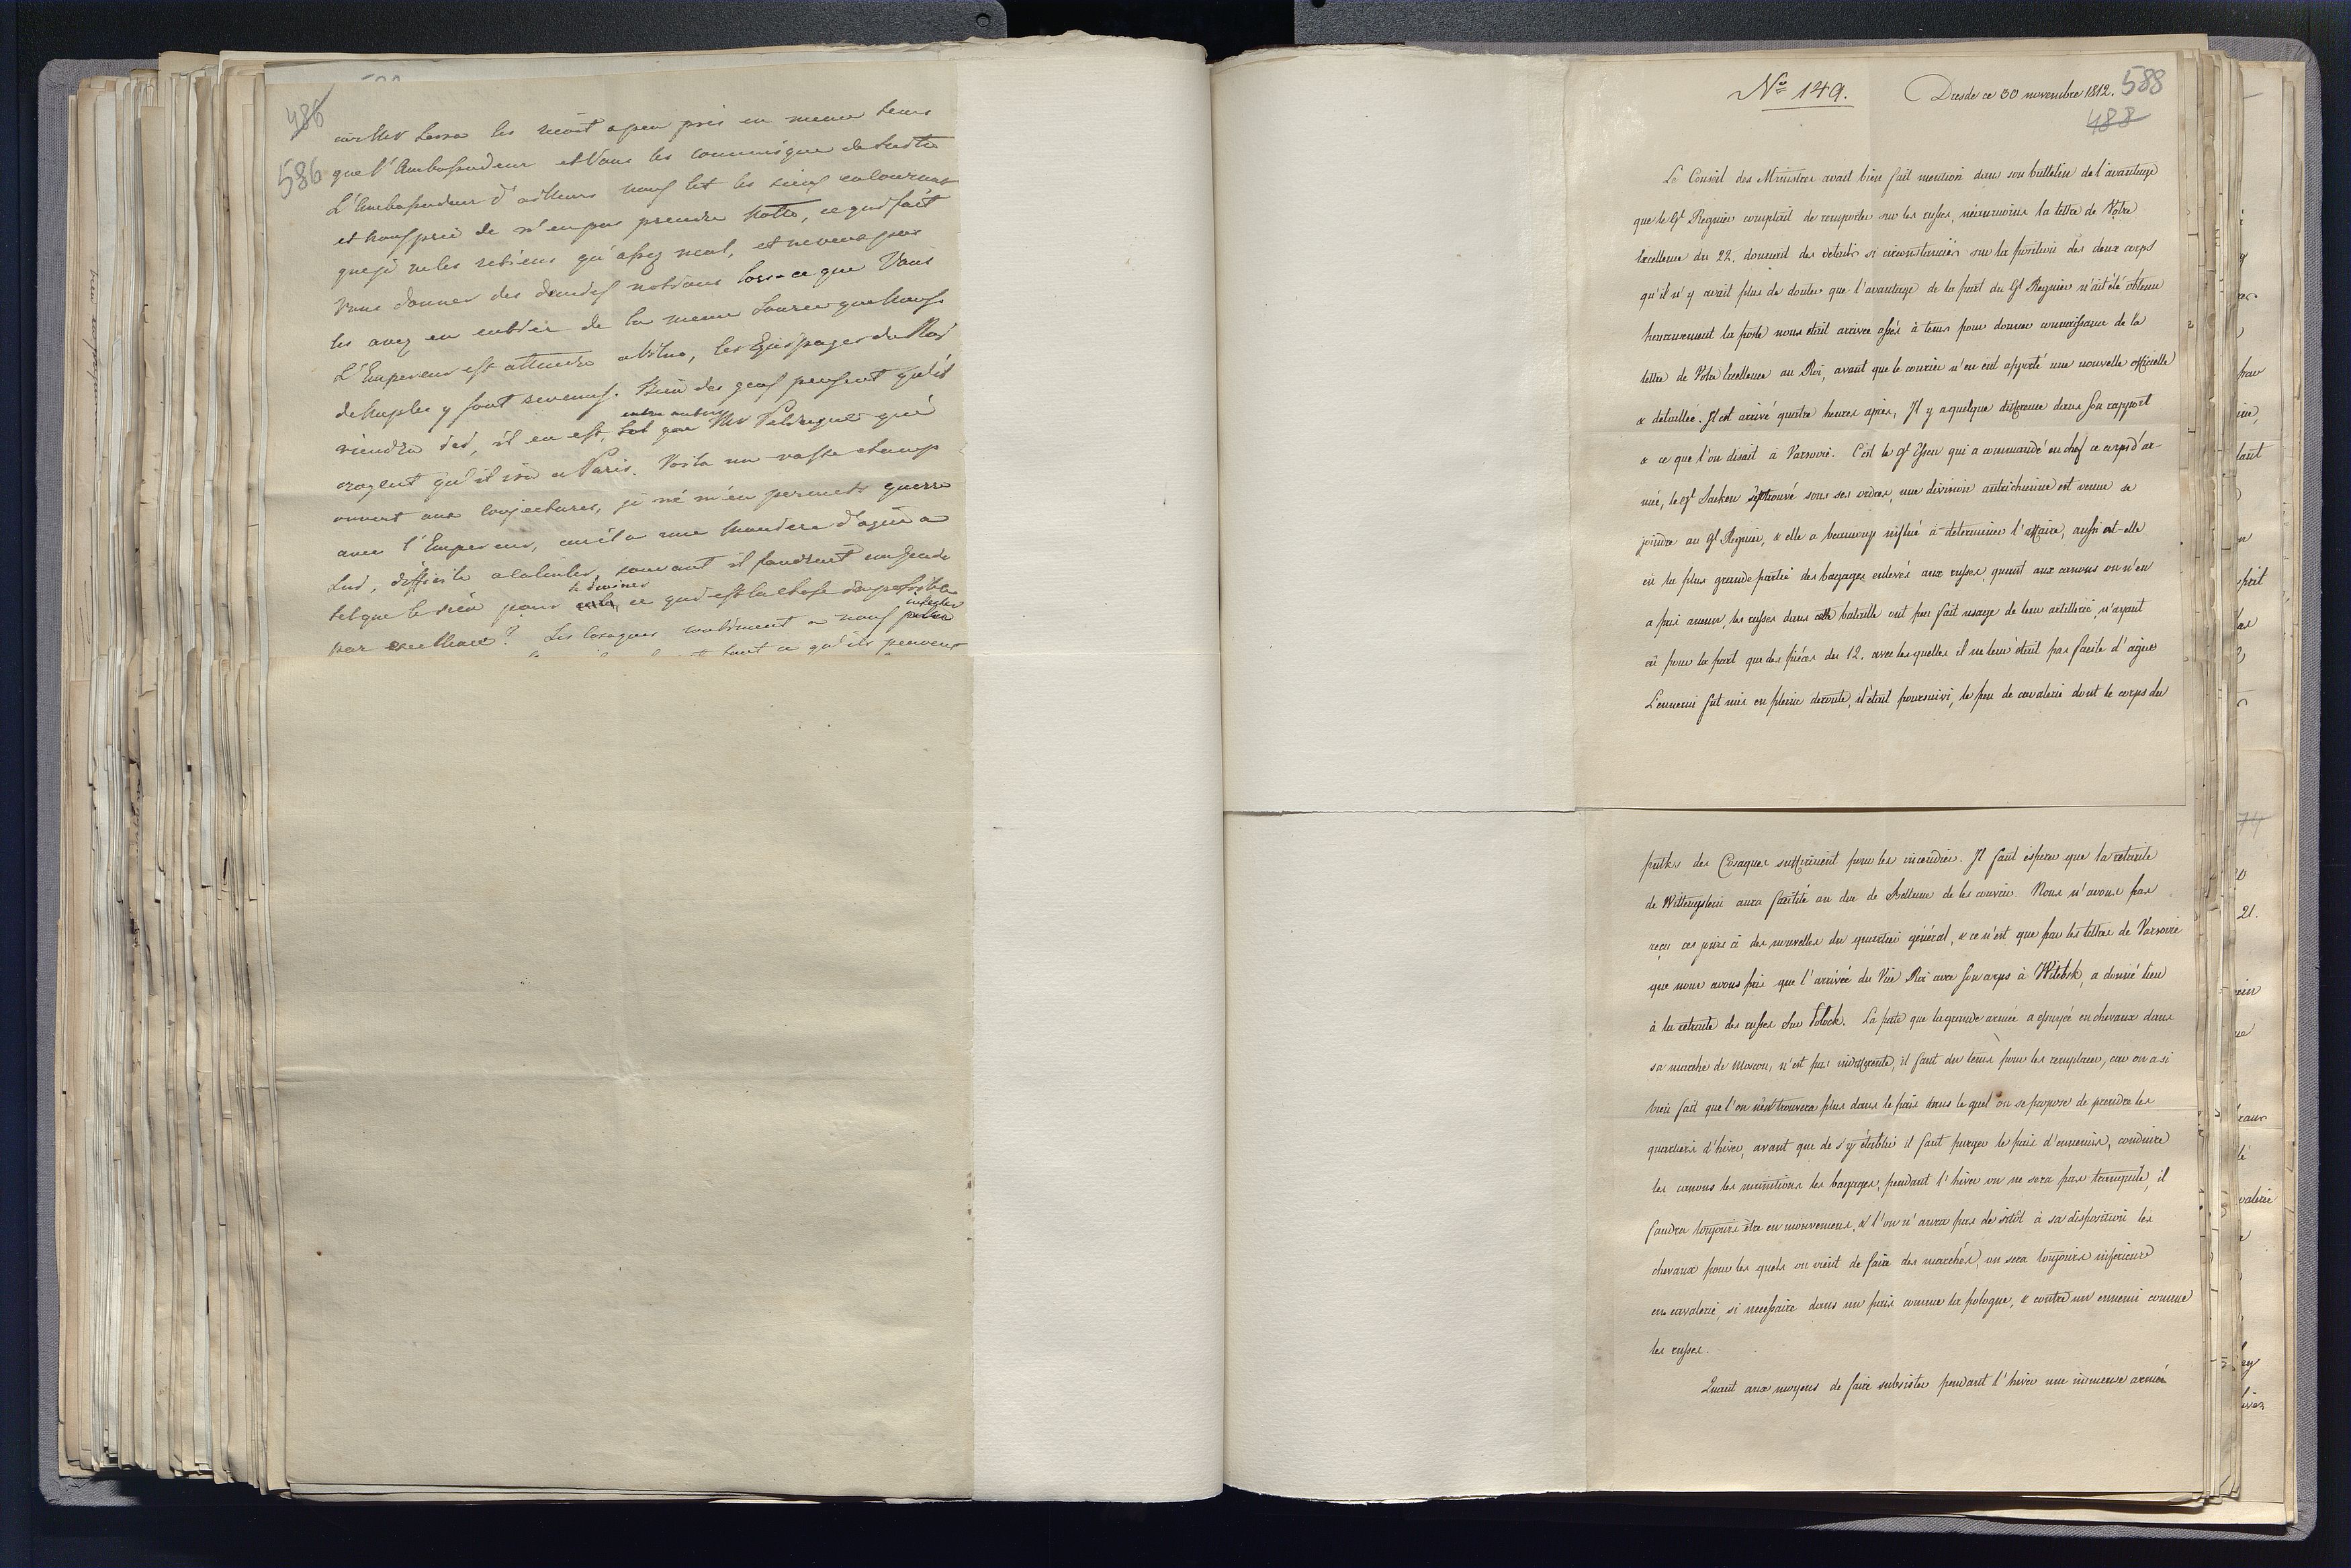 486
586
car Mr Serra les reçoit a peu près en meme tems
que l'Ambassadeur et Vous les communique de suite
L'Ambassadeur d'ailleurs nous lit les siens en courant
et nous prie de n'en pas prendre Notte, ce qui fait
que je ne les retiens qu'assez mal, et ne veux pas
Vous donner des demies notions lors-ce que Vous
les avez en entier de la meme source que Nous.
L'Empereur est attendu a Vilna, les Equipages du Roi
de Naples y sont revenus. Bien des gens pensent qu'il
viendra ici, il en est, entre autres Mr qui
croyent qu'il ira a Paris. Voila un vaste champ
ouvert aux conjectures, je ne m'en permets guerre
avec l'Empereur, car il a une maniere d'agir a
Lui, difficile a calculer, souvant il faudrait un Genie
tel que le sien pour le deviner ce qui est la chose impossible
par excellence? Les Cosaques continuent a nous infester
tout ce qu'ils peuvent
No 149.
Dresde ce 30 novembre 1812.
588
488
Le Conseil des Ministres avait bien fait mention dans son bulletin de l'avantage
que le Gl Regnier comptait de remporter sur les russes, néanmoins la lettre de Votre
Excellence du 22. donnait des details si circonstanciés sur la position des deux corps
qu'il n'y avait plus de doutes que l'avantage de la part du Gl Regnier n'ait été obtenu
heureusement la poste nous était arrivée assés à tems pour donner connoissance de la
lettre de Votre Excellence au Roi, avant que le courier n'en eut apporté une nouvelle officielle
& détaillée. Il est arrivé quatre heures après, Il y a quelque difference dans son rapport
& ce que l'on disait à Varsovie. C'est le gl Essen qui a commandé en chef ce corps d'ar-
mée, le gl Sacken s'est trouvé sous ses ordres, une division autrichienne est venue se
joindre au gl Regnier, & elle a beaucoup influé à determiner l'affaire, aussi at-elle
eû la plus grande partie des bagages enlevés aux russes, quant aux canons on n'en
a pris aucun, les russes dans cette bataille ont peu fait usage de leur artillerie, n'ayant
eû pour la part que des pièces de 12. avec lesquelles il ne leur était pas facile d'agir
L'ennemi fut mis en pleine deroute, il était poursuivi, le peu de cavalerie dont le corps du
pulks des Cosaques suffiraient pour les incendier. Il faut espérer que la retraite
de Wittengstein aura facilité au duc de Bellune de les couvrir. Nous n'avons pas
reçu ces jours ci des nouvelles du quartier général, & ce n'est que par les lettres de Varsovie
que nous avons pris que l'arrivée du Vice Roi avec son corps à Witebsk, a donné lieu
à la retraite des russes sur Polock. La perte que la grande armée a essuyé en chevaux dans
sa marche de Moscou, n'est pas indifferente, il faut du tems pour les remplacer, car on a si
bien fait que l'on n'en trouvera plus dans le païs dans le quel on se propose de prendre les
quartiers d'hiver, avant que de s'y établir il faut purger le païs d'ennemis, conduire
les canons les munitions les bagages, pendant l'hiver on ne sera pas tranquile, il
faudra toujours être en mouvemens, & l'on n'aura pas de sitôt à sa disposition les
chevaux pour les quels on vient de faire des marchés, on sera toujours inferieurs
en cavalerie, si necessaire dans un païs comme la pologne, & contre un ennemi comme
les russes.
Quant aux moyens de faire subsister pendant l'hiver une immense armée